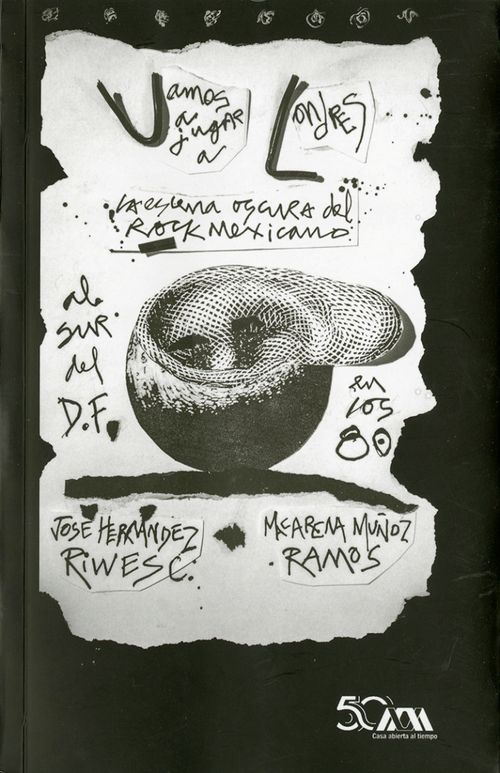 Vamos
a
jugar
a
Londres
La escena oscura del
Rock mexicano
al
sur
del
D.F.
en
los
80
JOSE HERNÁNDEZ
RIWES C.
MACARENA MUÑOZ
RAMOS
50
Casa abierta al tiempo